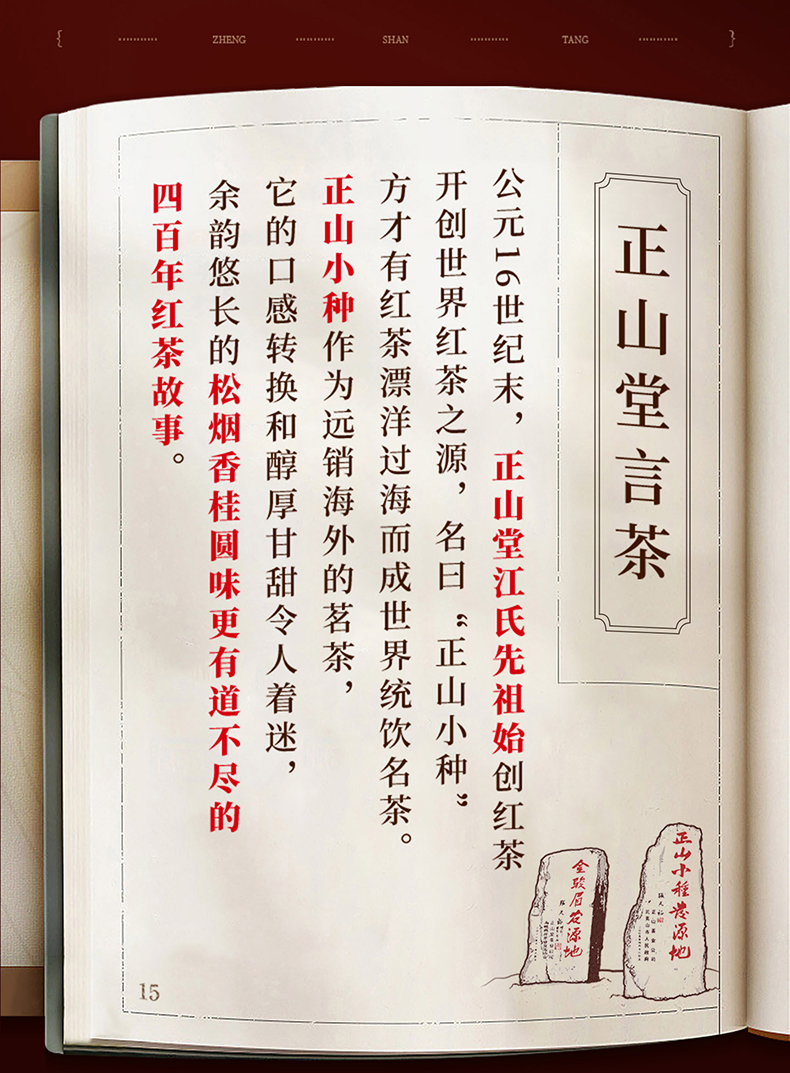 ZHENG SHAN TANG
正山堂言茶
公元16世纪末，正山堂江氏先祖始创红茶
开创世界红茶之源，名曰“正山小种”
方才有红茶漂洋过海而成世界统饮名茶。
正山小种作为远销海外的茗茶，
它的口感转换和醇厚甘甜令人着迷，
余韵悠长的松烟香桂圆味更有道不尽的
四百年红茶故事。
正山小種發源地
金骏眉发源地
15